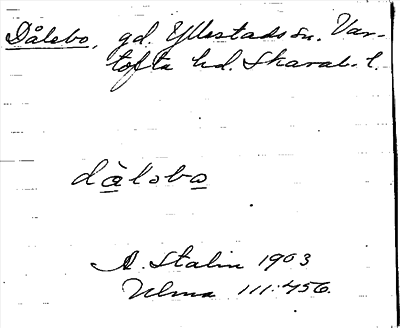 Dålebo, gd. Yllestads sn. Var-
tofta hd. Skarab. l.
dàlobo
A. Stalin 1903
Ulma 111:456.